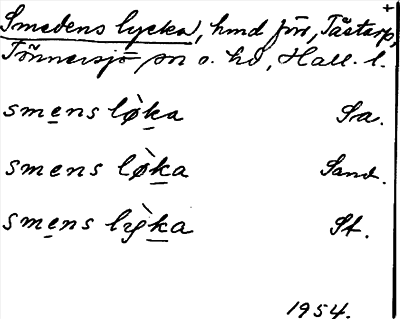 +
Smedens lycka, hmd för, Tåstarp,
Tönnersjö sn o. hd, Hall. l.
smens lø̀ka Sa.
smens lø̀ka Sand.
smens lỳka St.
1954.